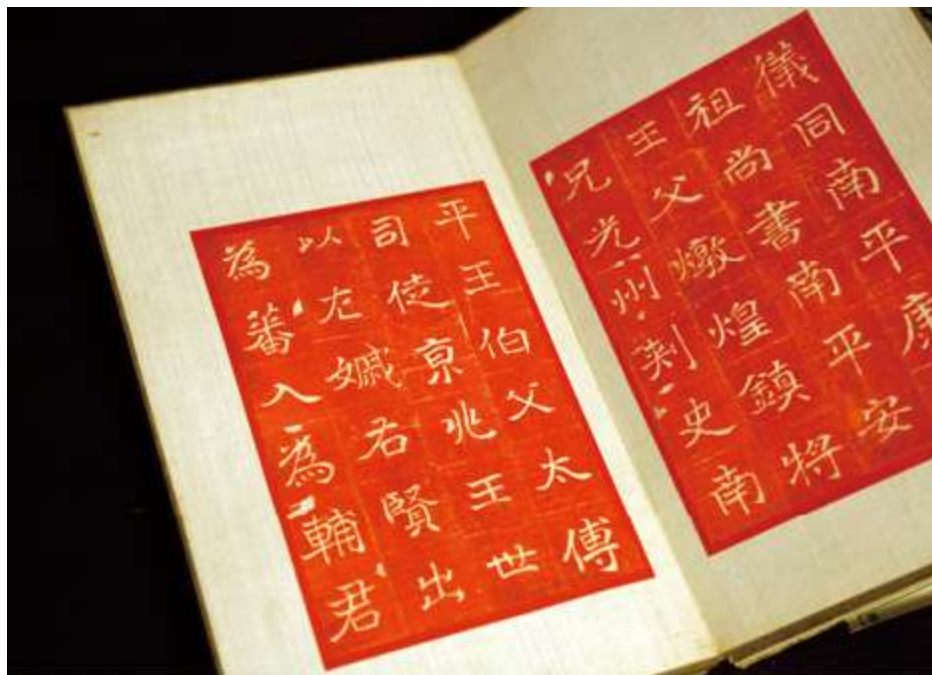 儀同南平康
祖尚書南平安
王父燉煌鎮將
兄光州刺史南
平王伯父太傅
司徒京兆王世
以左戚右賢出
為蕃入為輔君